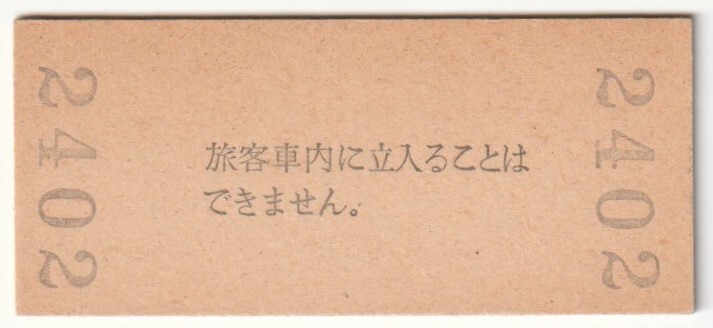 2402
旅客車内に立入ることは
できません。
2402